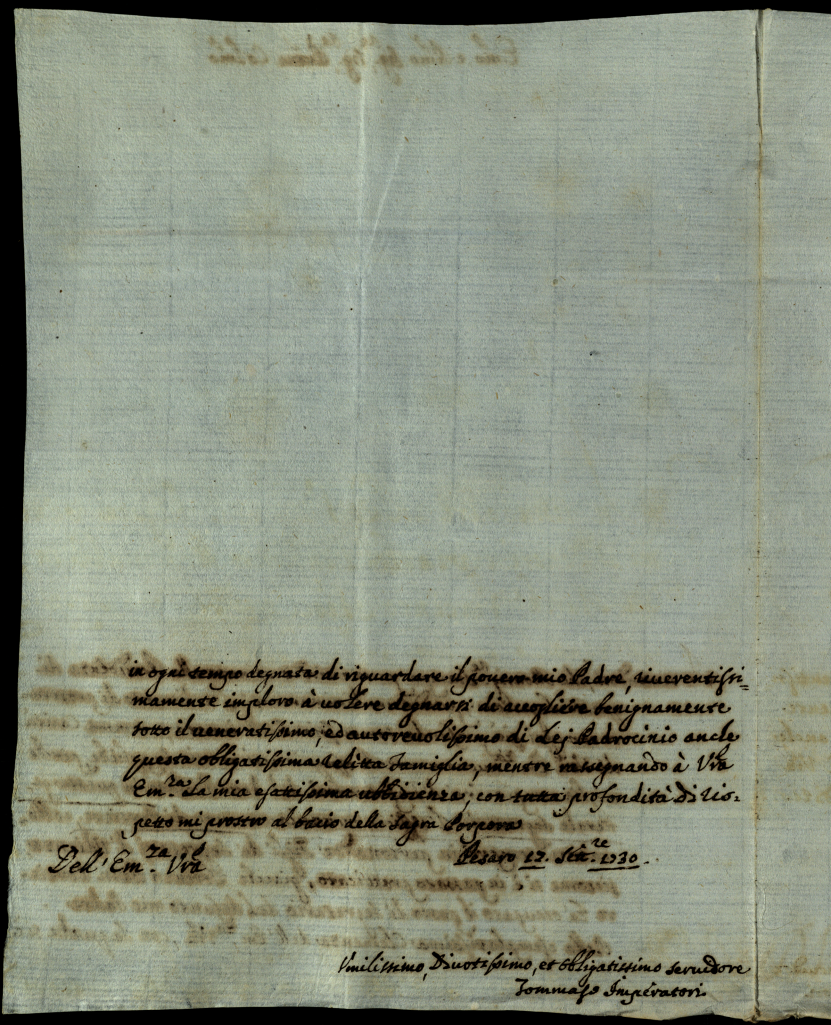 in ogni tempo degnata di riguardare il povero mio Padre, riverentissi=
mamente imploro à volere degnarsi di accogliere benignamente
sotto il veneratissimo, ed autorevolissimo di Lej Padrocinio anche
questa obligatissima relitta Famiglia, mentre rassegnando à Vrã
Em.za la mia esattissima ubbidienza, con tutta profondità di ris-
petto mi prostro al bacio della Sagra Porpora
Dell' Em.za Vrã
Pesaro 12. Sett.re 1730.
Vmilissimo, Divotissimo, et Obligatissimo servidore
Tommaso Imperatori